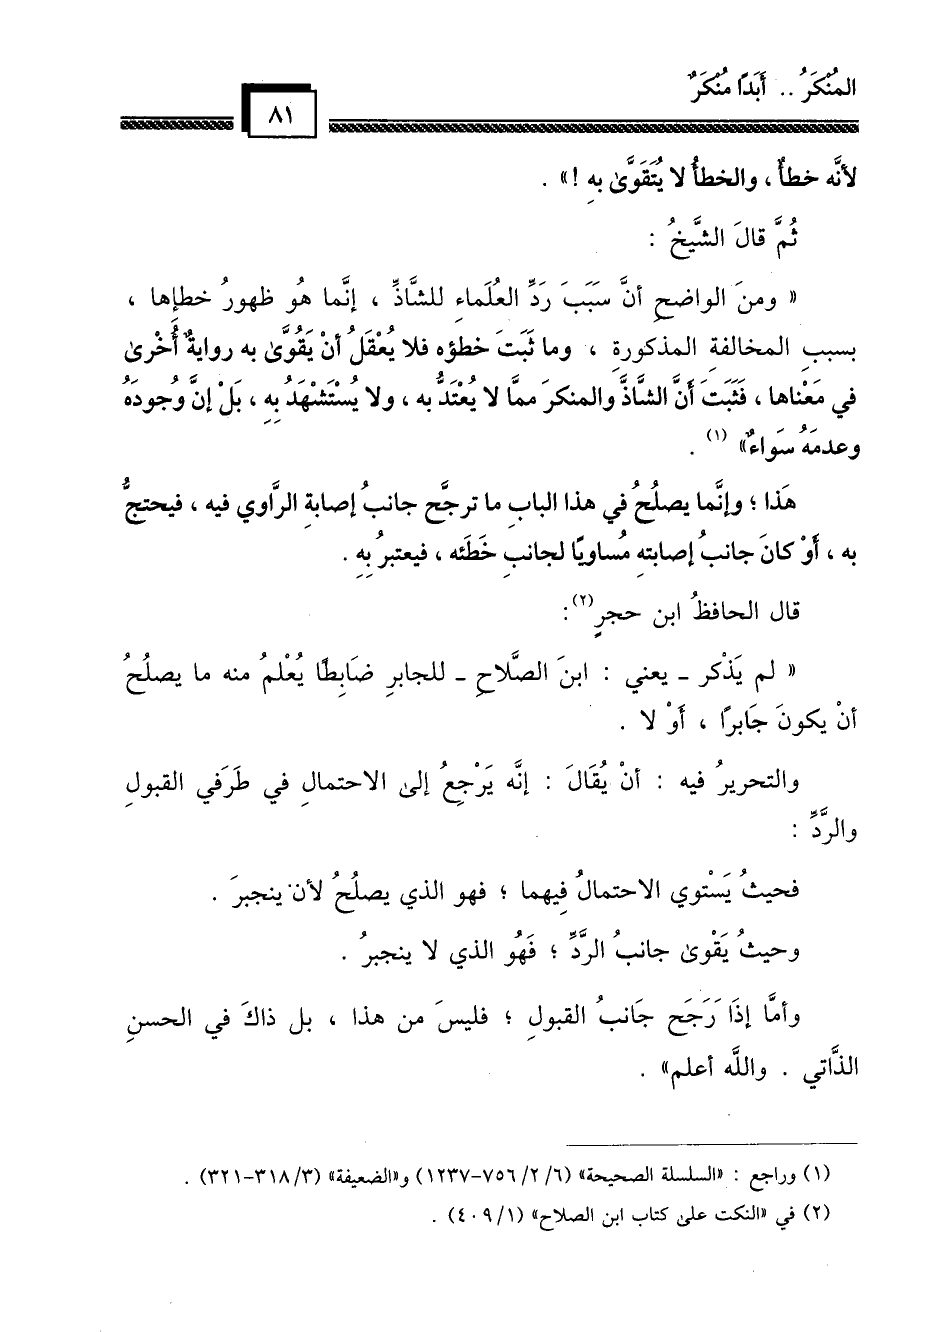 المُنْكَرُ .. أَبَدًا مُنْكَرٌ
٨١
لأنَّه خطأٌ ، والخطأُ لا يُتَقَوَّىٰ بهِ !» .
ثُمَّ قالَ الشَّيخُ :
« ومنَ الواضحِ أنَّ سَبَبَ رَدِّ العُلَماءِ للشَّاذِّ ، إنَّما هُو ظهورُ خطإِها ،
بسببِ المخالفةِ المذكورةِ ، وما ثَبَتَ خطؤُه فلا يُعْقَلُ أنْ يَقُوَّىٰ به روايةٌ أُخْرىٰ
في مَعْناها ، فَثَبَتَ أنَّ الشاذَّ والمنكرَ ممَّا لا يُعْتَدُّ به ، ولا يُسْتَشْهَدُ بِهِ ، بَلْ إنَّ وُجودَهُ
وعدمَهُ سَواءٌ» (١) .
هَذا ؛ وإنَّما يصلُحُ في هذا البابِ ما ترجَّح جانبُ إصابةِ الرَّاوي فيه ، فيحتجُّ
به ، أَوْ كانَ جانبُ إصابتهِ مُساويًا لجانبِ خَطَئه ، فيعتبرُ بِهِ .
قال الحافظُ ابن حجرٍ(٢):
« لم يَذْكر ـ يعني : ابنَ الصَّلاحِ ـ للجابرِ ضَابِطًا يُعْلمُ منه ما يصلُحُ
أنْ يكونَ جَابرًا ، أَوْ لا .
والتحريرُ فيه : أنْ يُقَالَ : إنَّه يَرْجِعُ إلىٰ الاحتمالِ في طَرَفي القبولِ
والرَّدِّ :
فحيثُ يَسْتوي الاحتمالُ فِيهما ؛ فهو الذي يصلُحُ لأن ينجبرَ .
وحيثُ يَقْوىٰ جانبُ الرَّدِّ ؛ فَهُو الذي لا ينجبرُ .
وأمَّا إذَا رَجَح جَانبُ القبولِ ؛ فليسَ من هذا ، بل ذاكَ في الحسنِ
الذَّاتي . واللَّه أعلم» .
(١) وراجع : «السلسلة الصحيحة» (٦/ ٢/ ٧٥٦-١٢٣٧) و«الضعيفة» (٣/ ٣١٨-٣٢١) .
(٢) في «النكت علىٰ كتاب ابن الصلاح» (١/ ٤٠٩) .